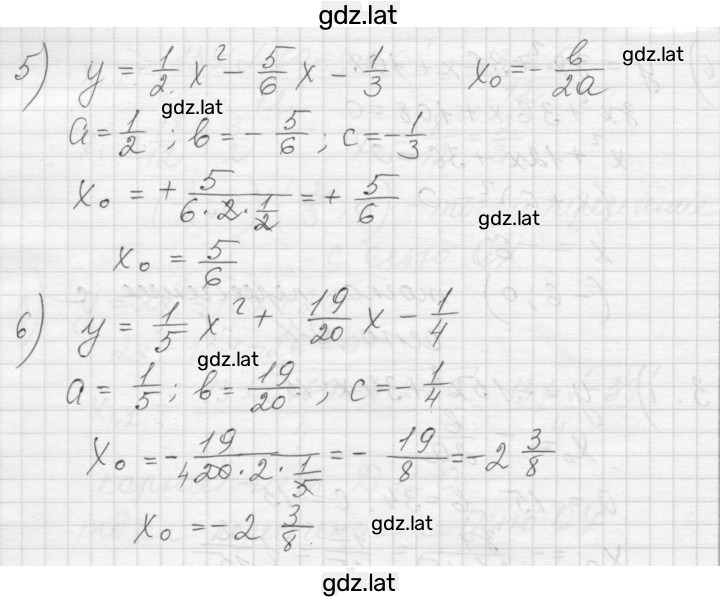 gdz.lat
5) y = 1/2 x² − 5/6 x − 1/3    x₀ = − b/2a
gdz.lat
gdz.lat
a = 1/2 ; b = − 5/6 ; c = − 1/3
x₀ = + 5/(6·2·1/2) = + 5/6
gdz.lat
x₀ = 5/6
6) y = 1/5 x² + 19/20 x − 1/4
gdz.lat
a = 1/5 ; b = 19/20 , c = − 1/4
x₀ = − 19/(4 20·2·1/5) = − 19/8 = −2 3/8
x₀ = −2 3/8
gdz.lat
gdz.lat